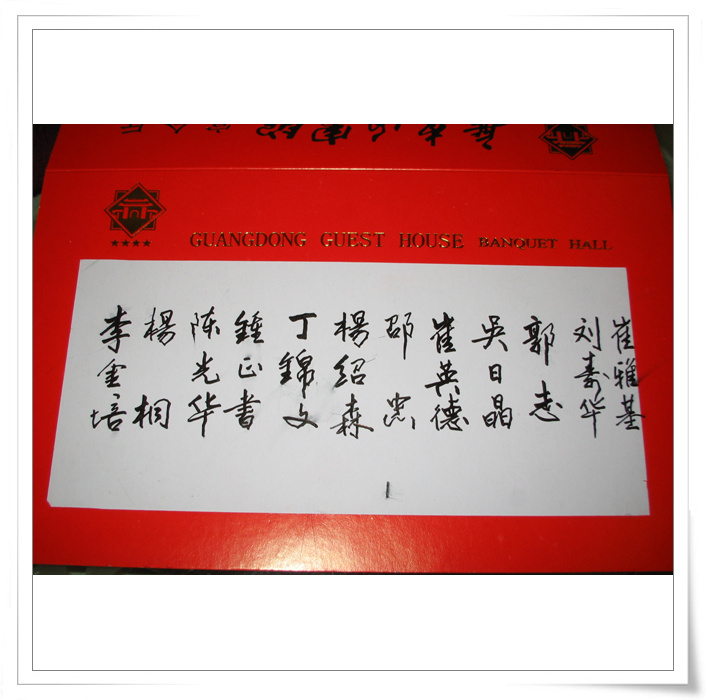 GUANGDONG GUEST HOUSE BANQUET HALL
崔雅基
刘寿华
郭志
吳日晶
崔英德
邵忠
楊绍森
丁錦文
鍾正書
陈光华
楊桐
李金培